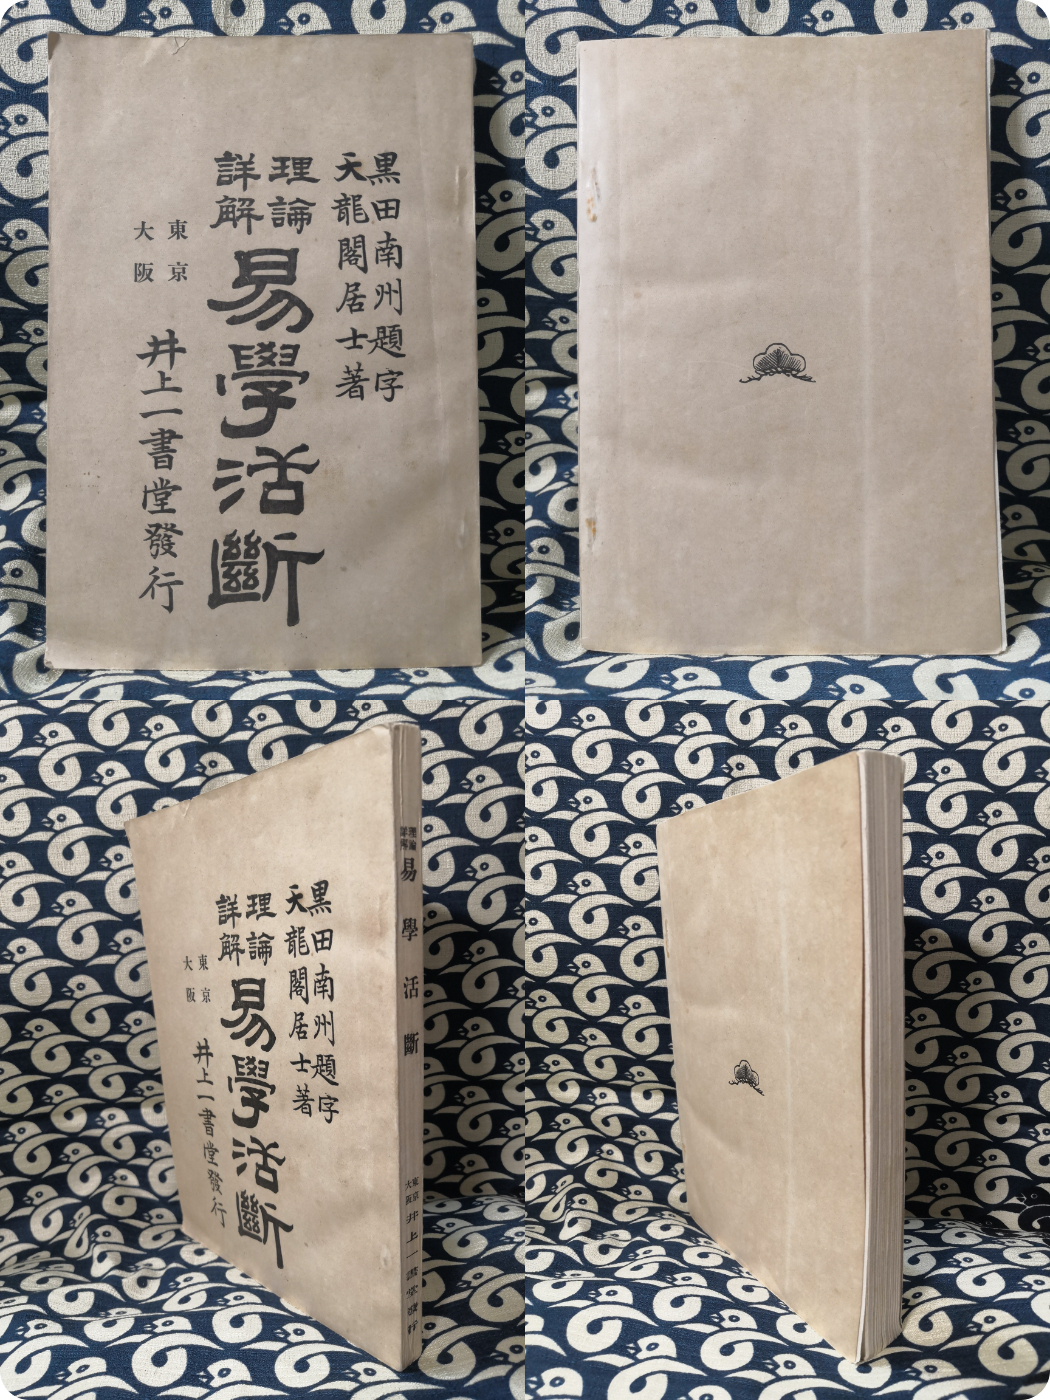 黒田南州題字
天龍閣居士著
理論
詳解
易學活斷
東京
大阪
井上一書堂發行
理論
詳解
易學活斷
東京
大阪
井上一書堂發行
黒田南州題字
天龍閣居士著
理論
詳解
易學活斷
東京
大阪
井上一書堂發行